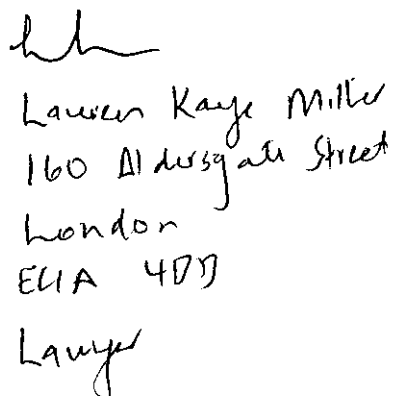 Lauren Kaye Miller
160 Aldersgate Street
London
EC1A 4DD
Lawyer